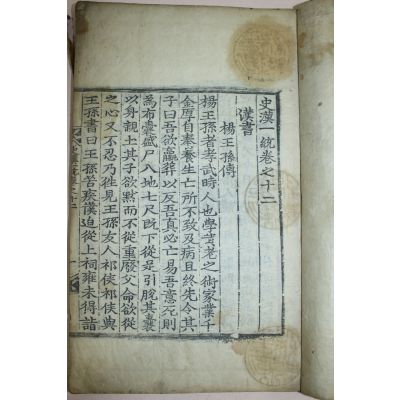 史漢一統卷之十二
漢書
楊王孫傳
楊王孫者孝武時人也學黃老之術家業千
金厚自奉養生亡所不致及病且終先令其
子曰吾欲臝葬以反吾真必亡易吾意死則
為布囊盛尸入地七尺既下從足引脫其囊
以身親土其子欲默而不從重廢父命欲從
之心又不忍乃徃見王孫友人祁侯祁侯與
王孫書曰王孫苦疾僕迫從上祠雍未得詣